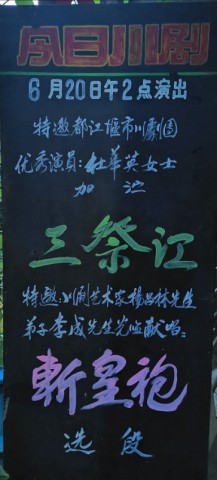 今日川剧
6月20日午2点演出
特邀都江堰市川劇團
优秀演員:杜華英女士
加泣
三祭江
特邀:川剧艺术家楊昌林先生
弟子李成先生先临献唱。
斬皇袍
选段